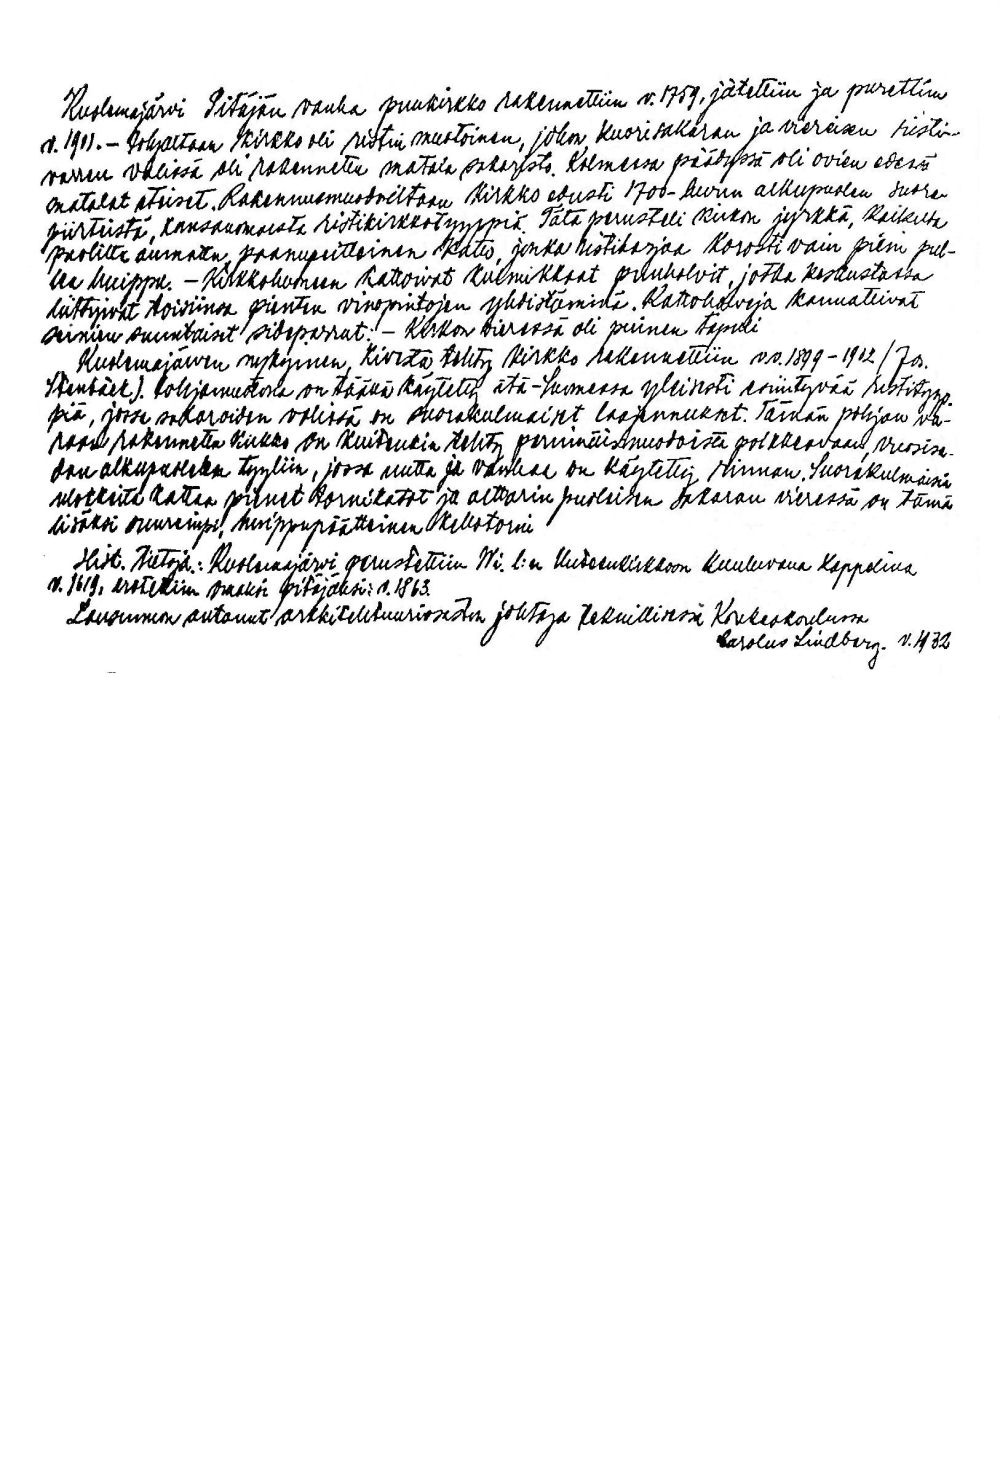 Kuolemajärvi Pitäjän vanha puukirkko rakennettiin v. 1759, jätettiin ja purettiin
v. 1901. – Pohjaltaan kirkko oli ristin muotoinen, johon kuorisakaran ja viereisen risti-
varren välissä oli rakennettu matala sakaristo. Kolmessa päädyssä oli ovien edessä
matalat eteiset. Rakennusmuodoiltaan kirkko edusti 1700-luvun alkupuolen suora-
piirteistä, kansanomaista ristikirkkotyyppiä. Tätä perusteli kirkon jyrkkä, kaikilta
puolilta aumattu, paanupeitteinen katto, jonka ristiharjaa korosti vain pieni pal-
lea huippu. – Kirkkohuoneen kattoivat kulmikkaat puuholvit, jotka keskustassa
liittyivät toisiinsa pienten vinopintojen yhdistäminä. Kattoholveja kannattivat
seinien suuntaiset sideparrut. – Kirkon vieressä oli puinen tapuli
Kuolemajärven nykyinen, kivestä tehty kirkko rakennettiin v.v. 1899–1902 / Jos.
Stenbäck). Pohjamuotona on tässä käytetty itä-Suomessa yleisesti esiintyvää ristityyp-
piä, jossa sakaroiden välissä on suorakulmaiset laajennukset. Tämän pohjan va-
raan rakennettu kirkko on kuitenkin tehty perinnäismuodoista poikkeavaan, vuosisa-
dan alkupuolen tyyliin, jossa uutta ja vanhaa on käytetty rinnan. Suorakulmaisia
ulokkeita kattaa pienet tornikatot ja alttarin puoleisen sakaran vieressä on tämä
lisäksi suurempi, huippupäätteinen kellotorni
Hist. Tietoja.: Kuolemajärvi perustettiin Wi. l:n Uudenkirkkoon kuuluvana kappelina
v. 1619, erotettiin omaksi pitäjäksi: v. 1863.
Lausunnon antanut arkkitehtuuriosaston johtaja Teknillisessä Korkeakoulussa
Carolus Lindberg. v. 1932